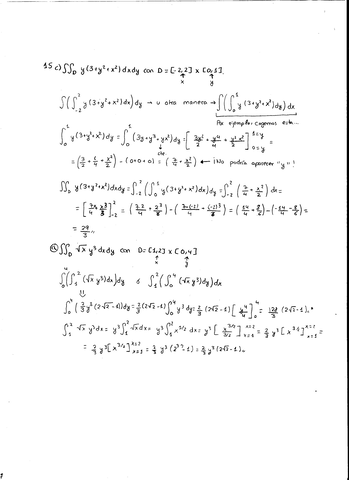 15 c) ∬_D y(3+y²+x²) dxdy con D=[-2,2] x [0,1].
x y
∫(∫_{-2}^{2} y(3+y²+x²)dx)dy → u otra manera → ∫(∫_0^1 y(3+y²+x²)dy)dx
Por ejemplo, cogemos esta...
∫_0^1 y(3+y²+x²)dy = ∫_0^1 (3y+y³+yx²)dy = [3y²/2 + y⁴/4 + y²x²/2]
cte
= (3/2 + 1/4 + x²/2) - (0+0+0) = (7/4 + x²/2) ← ¡No podría aparecer "y"!
∬_D y(3+y²+x²)dxdy = ∫_{-2}^{2} (∫_0^1 y(3+y²+x²)dx)dy = ∫_{-2}^{2} (7/4 + x²/2) dx =
D=[1,2] x [0,4]
x y
∬_D √x y³ dxdy con
∫_0^4 (∫_1^2 (√x y³)dx)dy ó ∫_1^2 (∫_0^4 (√x y³)dy)dx
∫_0^4 (2/3 y³(2√2-1))dy = 2/3 (2√2-1) ∫_0^4 y³ dy = 2/3 (2√2-1) [y⁴/4]_0^4 = 128/3 (2√2-1).
∫_1^2 √x y³ dx = y³ ∫_1^2 √x dx = y³ ∫_1^2 x^{1/2} dx = y³ [x^{3/2}/(3/2)]_{x=1}^{x=2} = 2/3 y³
= 2/3 y³ [x^{3/2}]_{x=1}^{x=2} = 2/3 y³ (2^{3/2}-1) = 2/3 y³ (2√2-1).